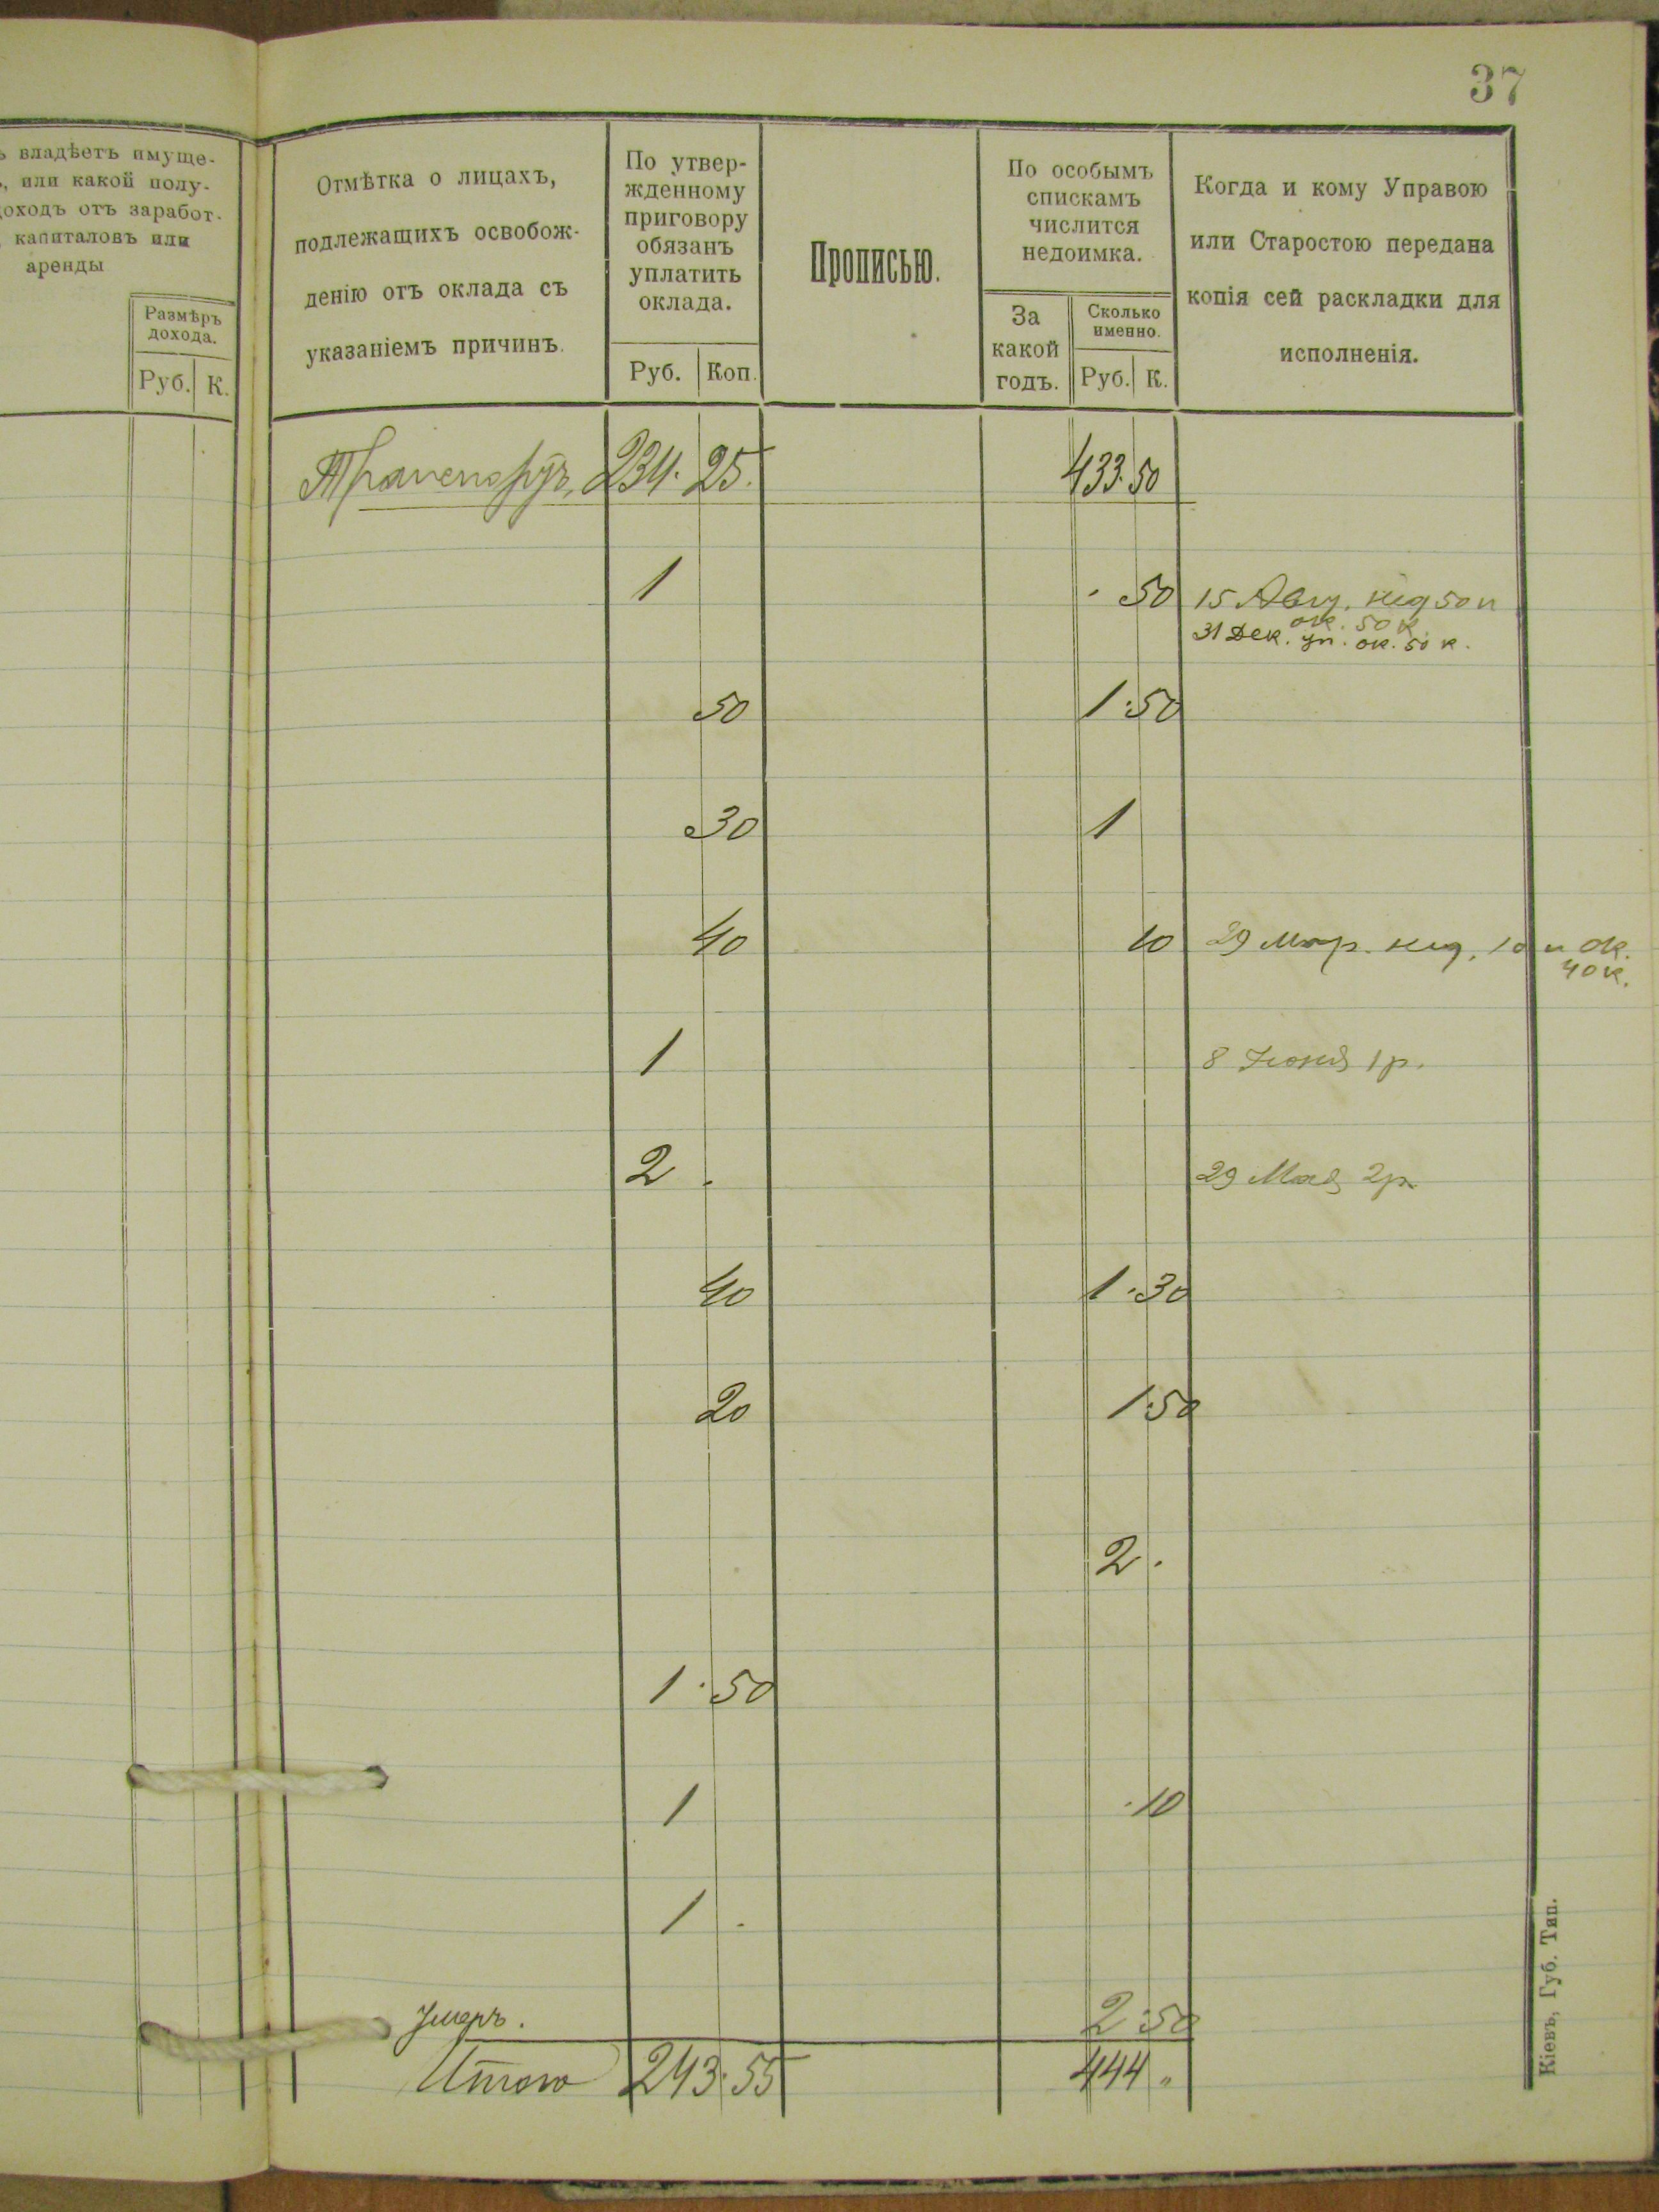 37
ъ владѣетъ имуще-
ъ, или какой полу-
доходъ отъ заработ-
, капиталовъ или
аренды
Размѣръ
дохода.
Руб. К.
Отмѣтка о лицахъ,
подлежащихъ освобож-
денію отъ оклада съ
указаніемъ причинъ.
По утвер-
жденному
приговору
обязанъ
уплатить
оклада.
Руб. Коп.
Прописью.
По особымъ
спискамъ
числится
недоимка.
За
какой
годъ.
Сколько
именно.
Руб. К.
Когда и кому Управою
или Старостою передана
копія сей раскладки для
исполненія.
Транспортъ 234. 25. 433. 50
1 . 50 15 Авг. нед 50 и
ок. 50 к.
31 Дек. уп. ок. 50 к.
50 1.50
30 1
40 10 29 Мар. нед. 10 и ок.
40 к.
1 8 Іюня 1 р.
2 . 29 Мая 2 р.
40 1.30
20 1.50
2.
1.50
1 .10
1 .
Умеръ. 2.50
Итого 243.55 444 "
Кіевъ, Губ. Тип.